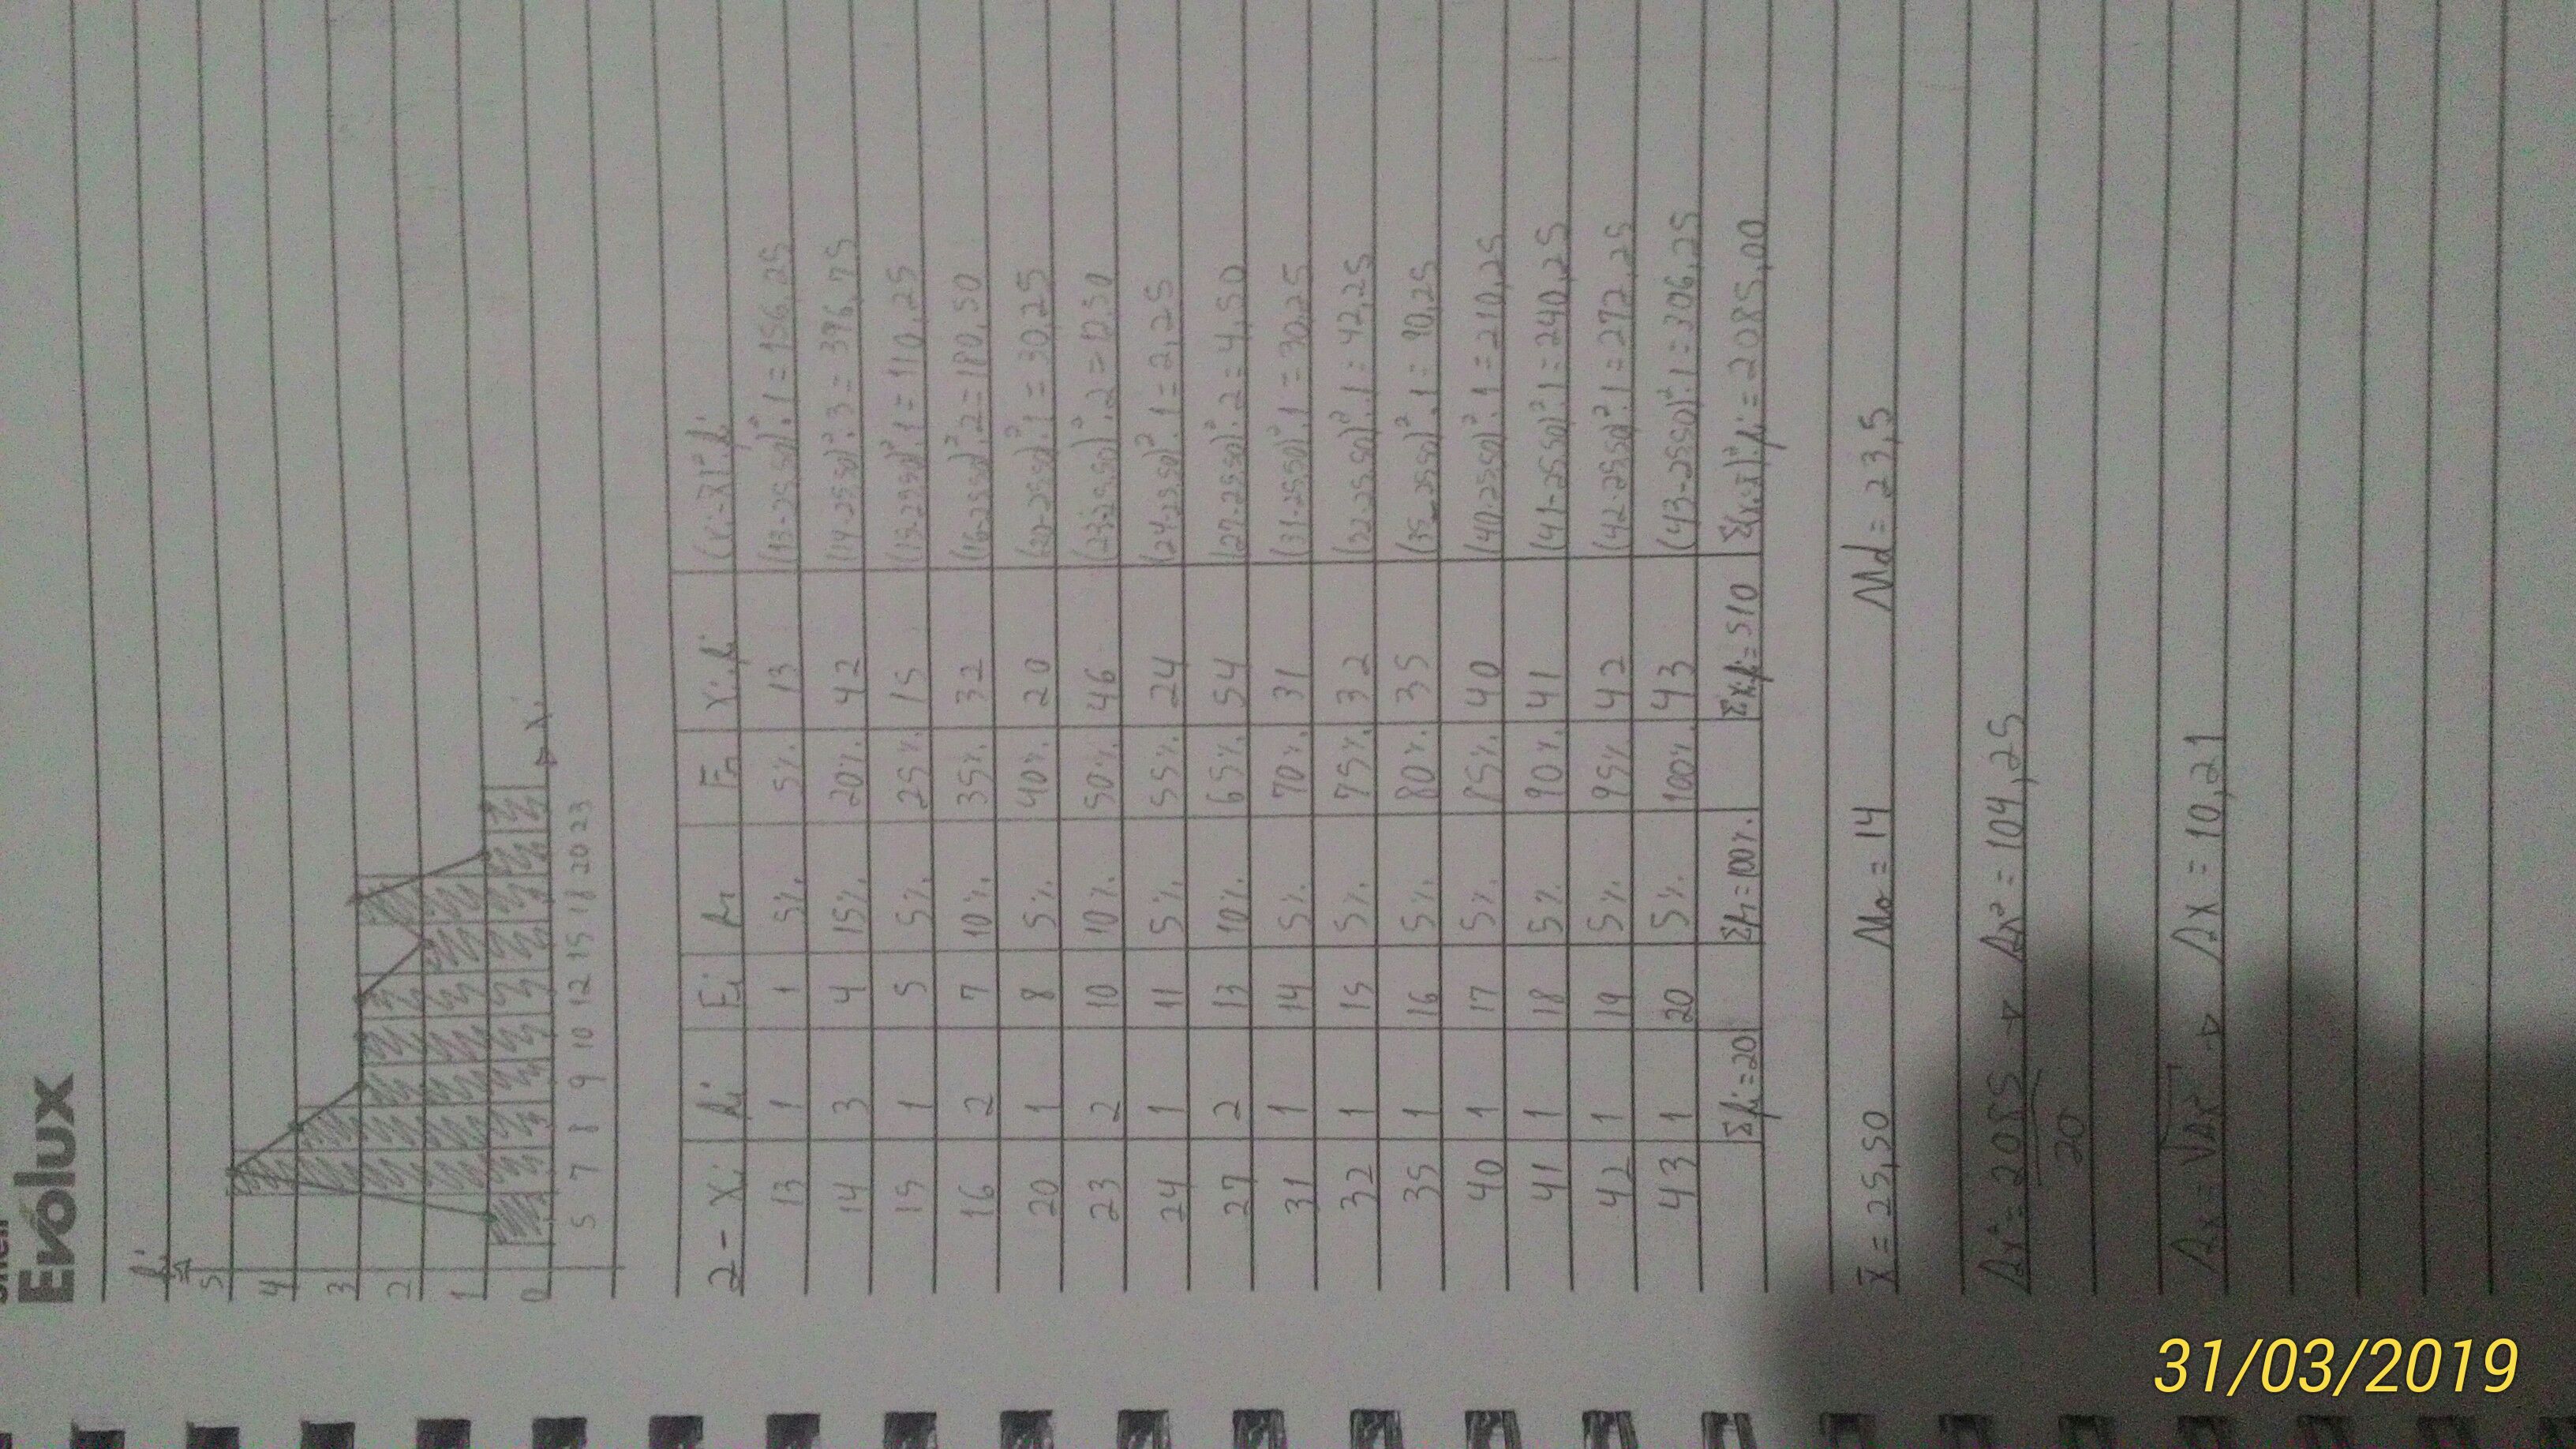 Evolux
fi
5
4
3
2
1
0
5 7 8 9 10 12 15 18 20 23 xi
2- xi fi Fi fr Fr xi.fi (xi-x̄)².fi
13 1 1 5% 5% 13 (13-25,50)².1=156,25
14 3 4 15% 20% 42 (14-25,50)².3=396,75
15 1 5 5% 25% 15 (15-25,50)².1=110,25
16 2 7 10% 35% 32 (16-25,50)².2=180,50
20 1 8 5% 40% 20 (20-25,50)².1=30,25
23 2 10 10% 50% 46 (23-25,50)².2=12,50
24 1 11 5% 55% 24 (24-25,50)².1=2,25
27 2 13 10% 65% 54 (27-25,50)².2=4,50
31 1 14 5% 70% 31 (31-25,50)².1=30,25
32 1 15 5% 75% 32 (32-25,50)².1=42,25
35 1 16 5% 80% 35 (35-25,50)².1=90,25
40 1 17 5% 85% 40 (40-25,50)².1=210,25
41 1 18 5% 90% 41 (41-25,50)².1=240,25
42 1 19 5% 95% 42 (42-25,50)².1=272,25
43 1 20 5% 100% 43 (43-25,50)².1=306,25
Σfi=20 Σfr=100% Σxi.fi=510 Σ(xi-x̄)².fi=2085,00
x̄=25,50 Mo=14 Md=23,5
Δx²=2085/20 → Δx²=104,25
Δx=√Δx² → Δx=10,21
31/03/2019